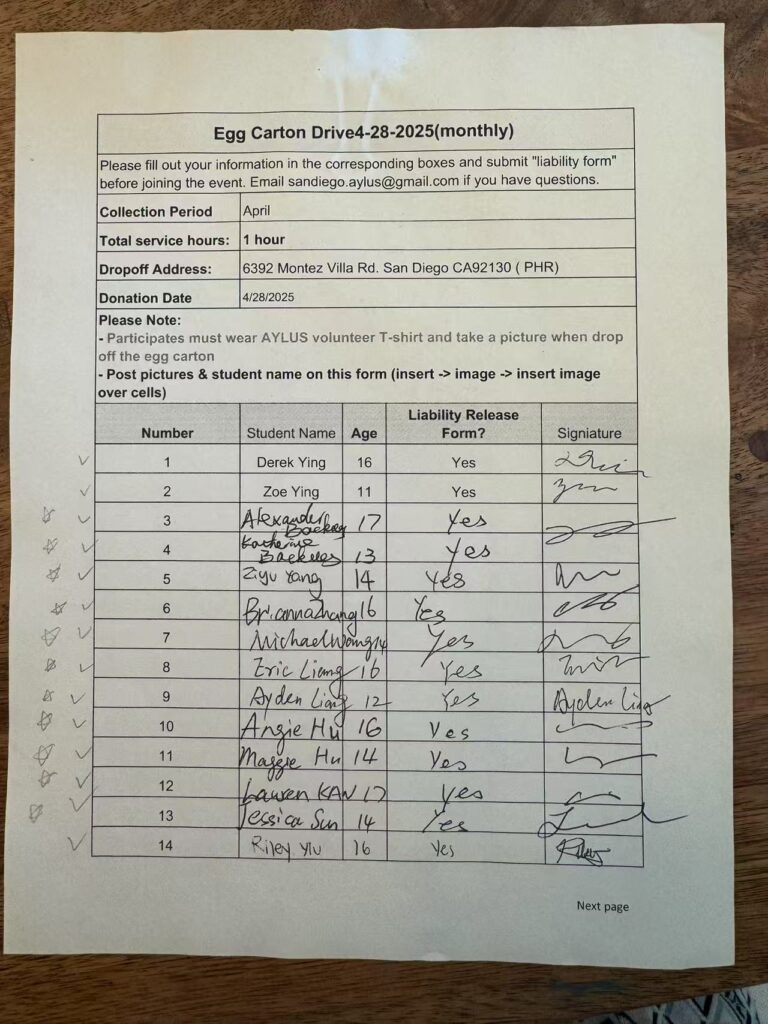 Egg Carton Drive4-28-2025(monthly)
Please fill out your information in the corresponding boxes and submit "liability form"
before joining the event. Email sandiego.aylus@gmail.com if you have questions.
Collection Period April
Total service hours: 1 hour
Dropoff Address: 6392 Montez Villa Rd. San Diego CA92130 ( PHR)
Donation Date 4/28/2025
Please Note:
- Participates must wear AYLUS volunteer T-shirt and take a picture when drop
off the egg carton
- Post pictures & student name on this form (insert -> image -> insert image
over cells)
Number Student Name Age Liability Release Form? Signiature
1 Derek Ying 16 Yes
2 Zoe Ying 11 Yes
3 Alexander 17 Yes
4 Katherine 13 Yes
5 Ziyu Yang 14 Yes
6 Brianna Zhang 16 Yes
7 Michael Wang 14 Yes
8 Eric Liang 16 Yes
9 Ayden Liang 12 Yes Ayden Liang
10 Angie Hu 16 Yes
11 Maggie Hu 14 Yes
12 Lauren KAN 17 Yes
13 Jessica Sun 14 Yes
14 Riley 16 Yes
Next page